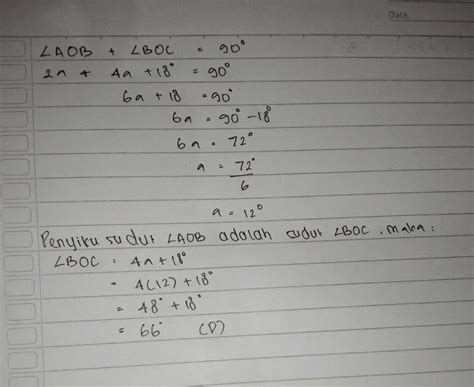 Date
∠AOB + ∠BOC = 90°
2a + 4a + 18° = 90°
6a + 18 = 90°
6a = 90° - 18°
6a = 72°
a = 72°
6
a = 12°
Penyiku sudut ∠AOB adalah sudut ∠BOC, maka:
∠BOC = 4a + 18°
= 4(12) + 18°
= 48° + 18°
= 66° (D)